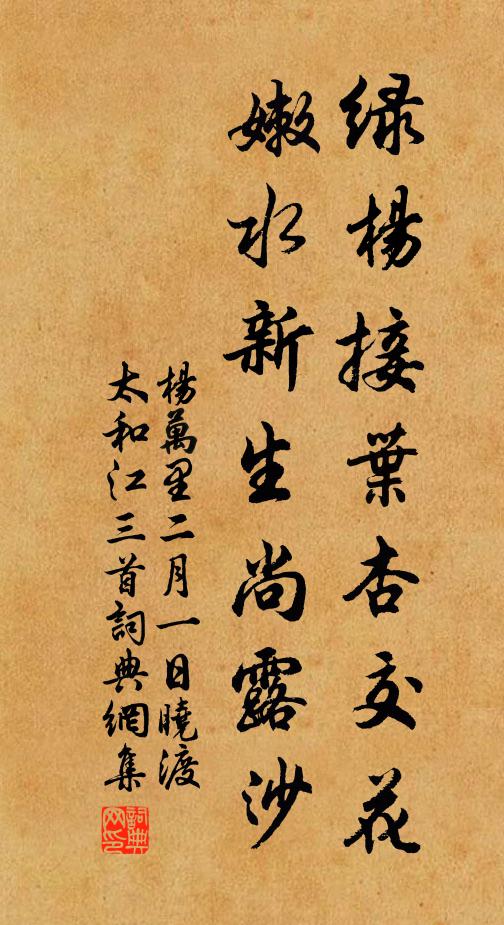 绿楊接葉杏交花
嫩水新生尚露沙
楊萬里二月一日曉渡
太和江三首詞典網集
詞典
网印